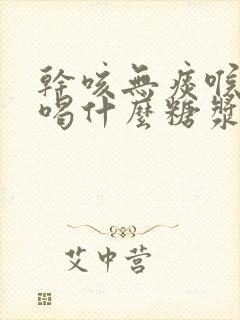 幹咳無痰喉
喝什麼糖漿
艾中营